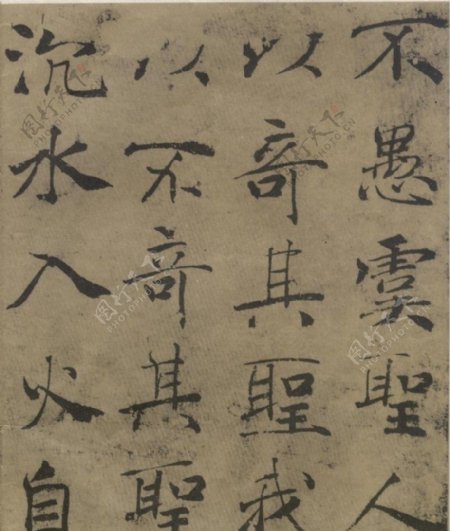 不愚虞聖人
以竒其聖我
以不竒其聖
沉水入火自
图行天下
PHOTOPHOTO.CN